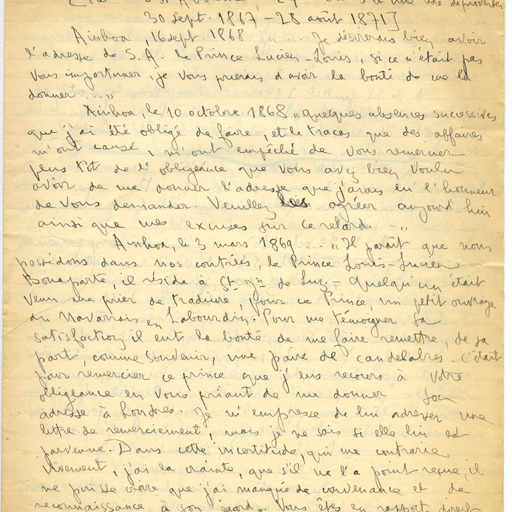 une de proverbes
30 sept. 1867 - 28 août 1871]
Ainhoa, 16 sept 1868 ... Je désirerais bien avoir
l'adresse de S.A. le Prince Lucien-Louis, si ce n'était pas
vous importuner, je vous prierais d'avoir la bonté de me la
donner ..."
Ainhoa, le 10 octobre 1868 "quelques absences successives
que j'ai été obligé de faire, et le tracas que des affaires
m'ont causé, m'ont empêché de vous remercier
plus tôt de l'obligeance que vous avez bien voulu
avoir de me donner l'adresse que j'avais eu l'honneur
de vous demander. Veuillez les agréer aujourd'hui
ainsi que mes excuses sur ce retard. ...
Ainhoa, le 3 mars 1869 ... "Il paraît que nous
possédons dans nos contrées, le Prince Louis-Lucien
Bonaparte, il réside à St J. de Luz - Quelqu'un était
venu me prier de traduire, pour ce Prince, un petit ouvrage
du Navarrais en Labourdin. Pour me témoigner sa
satisfaction il eut la bonté de me faire remettre, de sa
part, comme souvenir, une paire de candelabres - c'était
pour remercier ce prince que j'eus recours à votre
obligeance en vous priant de me donner son
adresse à Londres. Je m'empresse de lui adresser une
lettre de remerciement, mais je ne sais si elle lui est
parvenue. Dans cette incertitude, qui me contrarie
vivement, j'ai la crainte, que s'il ne l'a point reçue, il
ne puisse croire que j'ai manqué de convenance et de
reconnaissance à son égard. Vous êtes en rapport direct